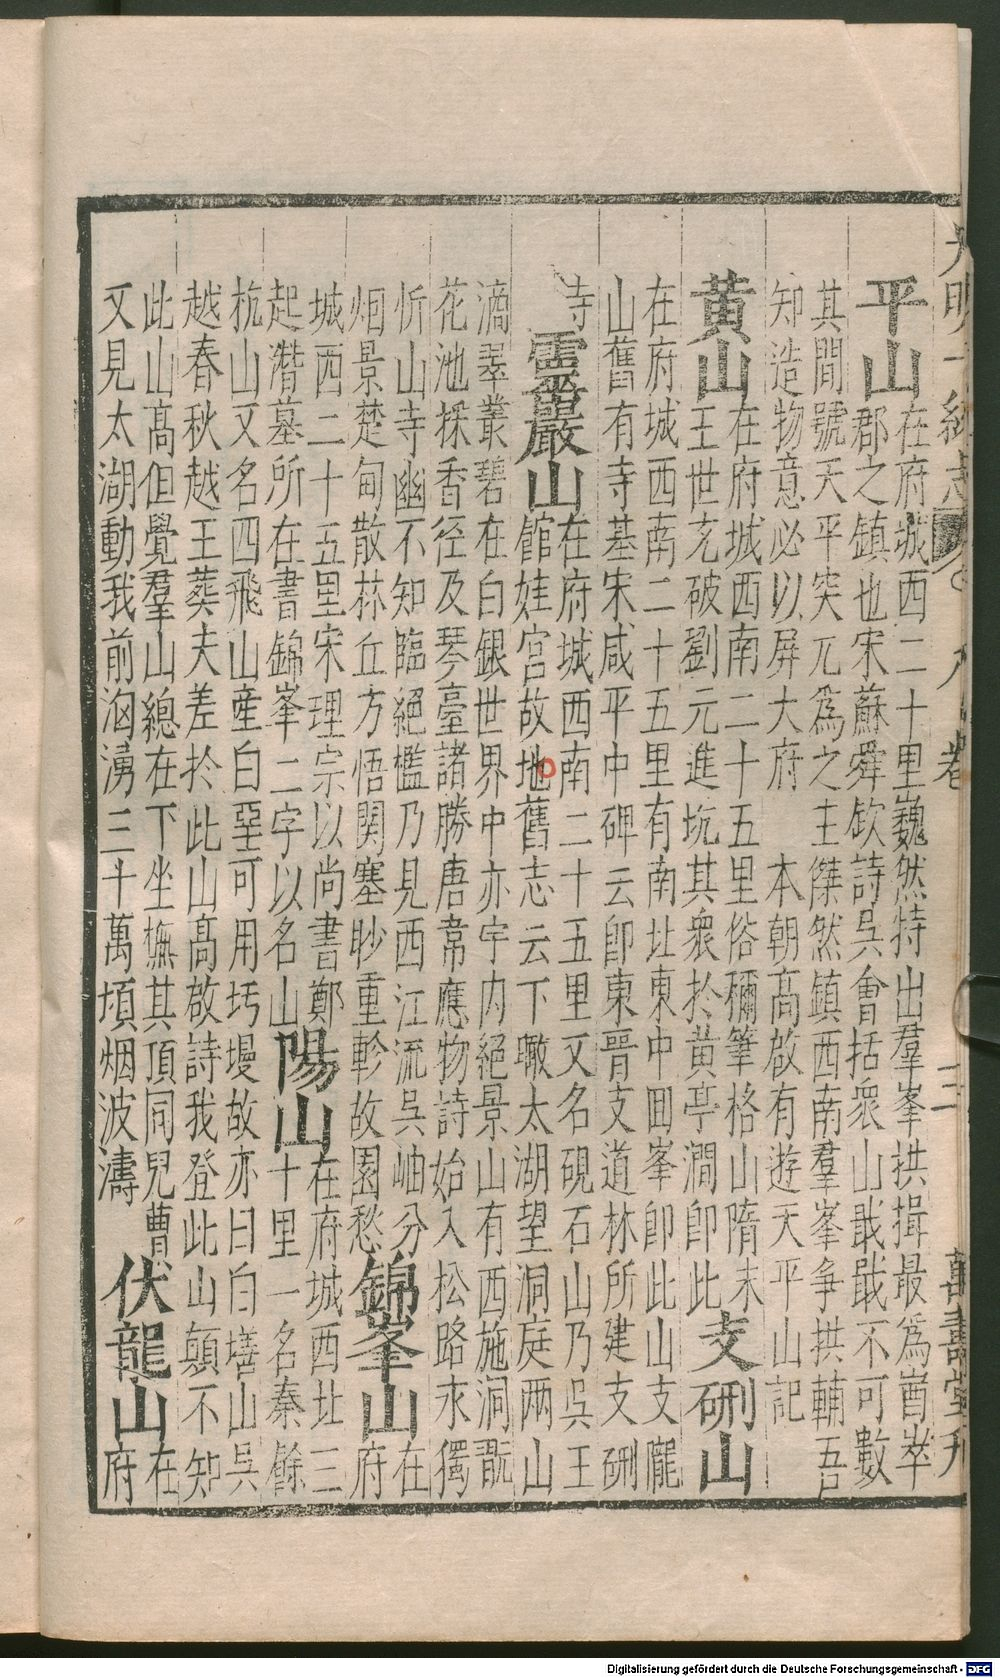 大明一統志 八卷 三 萬壽堂刋
平山
在府城西二十里巍然特出羣峯拱揖最爲崷崒
郡之鎮也宋蘇舜欽詩吳會括衆山戢戢不可數
其間號天平突兀爲之主傑然鎮西南羣峯争拱輔吾
知造物意必以屏大府 本朝高啟有遊天平山記
黄山
在府城西南二十五里俗彌筆格山隋末
王世充破劉元進坑其衆於黄亭澗即此
支硎山
在府城西南二十五里有南北東中回峯即此山支隴
山舊有寺基宋咸平中碑云即東晋支道林所建支硎
寺
靈巖山
在府城西南二十五里又名硯石山乃吳王
館娃宫故地舊志云下瞰太湖望洞庭两山
滴翠叢碧在白銀世界中亦宇内絕景山有西施洞翫
花池採香径及琴臺諸勝唐韋應物詩始入松路永獨
忻山寺幽不知臨絕檻乃見西江流吳岫分
烟景楚甸散林丘方悟関塞眇重軫故園愁
錦峯山
在
府
城西二十五里宋理宗以尚書鄭
起潛墓所在書錦峯二字以名山
陽山
在府城西北三
十里一名秦餘
杭山又名四飛山産白堊可用圬墁故亦曰白墡山吳
越春秋越王葬夫差於此山高啟詩我登此山顛不知
此山高但覺羣山總在下坐撫其頂同兒曹
又見太湖動我前洶湧三十萬頃烟波濤
伏龍山
在
府
Digitalisierung gefördert durch die Deutsche Forschungsgemeinschaft - DFG